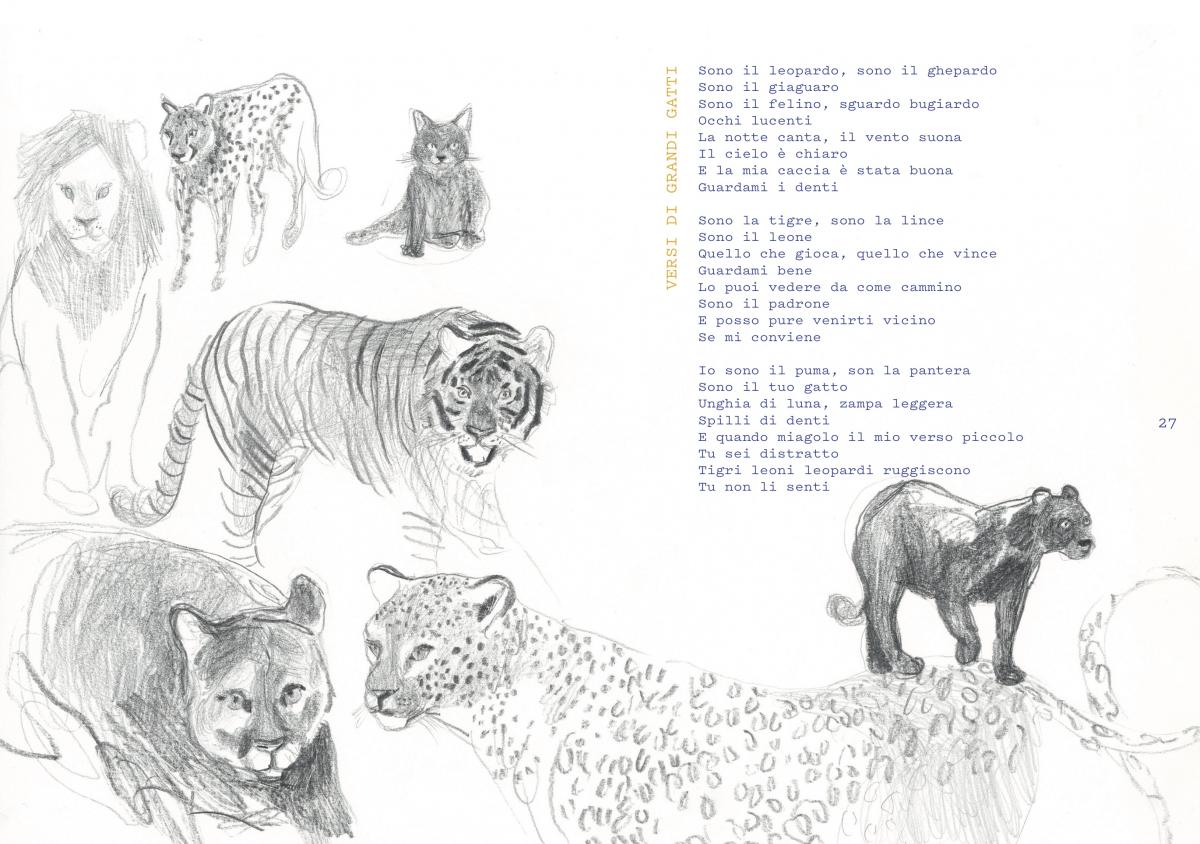 VERSI DI GRANDI GATTI
Sono il leopardo, sono il ghepardo
Sono il giaguaro
Sono il felino, sguardo bugiardo
Occhi lucenti
La notte canta, il vento suona
Il cielo è chiaro
E la mia caccia è stata buona
Guardami i denti

Sono la tigre, sono la lince
Sono il leone
Quello che gioca, quello che vince
Guardami bene
Lo puoi vedere da come cammino
Sono il padrone
E posso pure venirti vicino
Se mi conviene

Io sono il puma, son la pantera
Sono il tuo gatto
Unghia di luna, zampa leggera
Spilli di denti
E quando miagolo il mio verso piccolo
Tu sei distratto
Tigri leoni leopardi ruggiscono
Tu non li senti
27